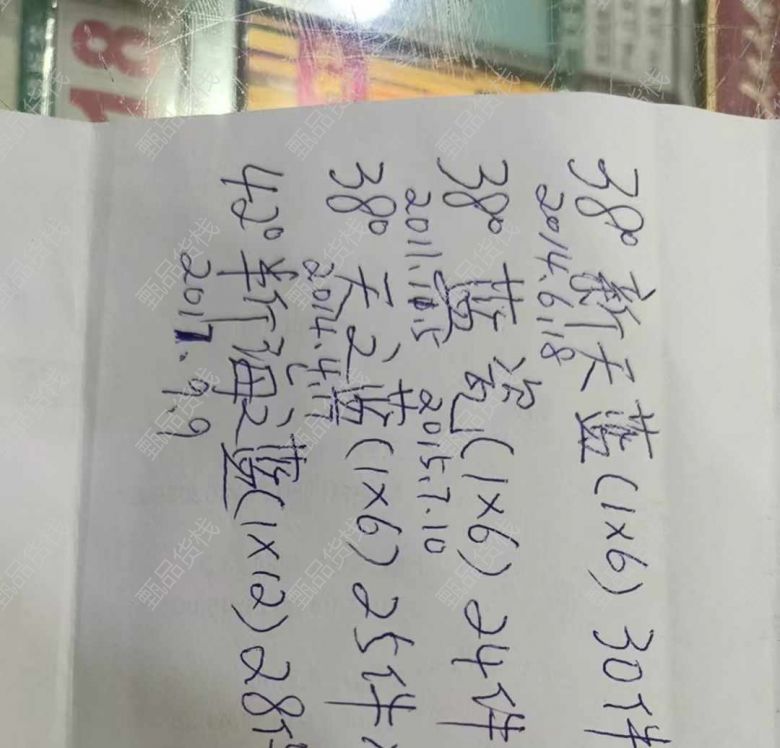 38° 新天蓝(1×6) 30件
2014.6.18
38° 蓝瓷(1×6) 24件
2011.11.15 2015.7.10
38° 天之蓝(1×6) 25件
2014.4.17
42° 新海之蓝(1×12) 28件
2017.9.9
18
甄品货栈